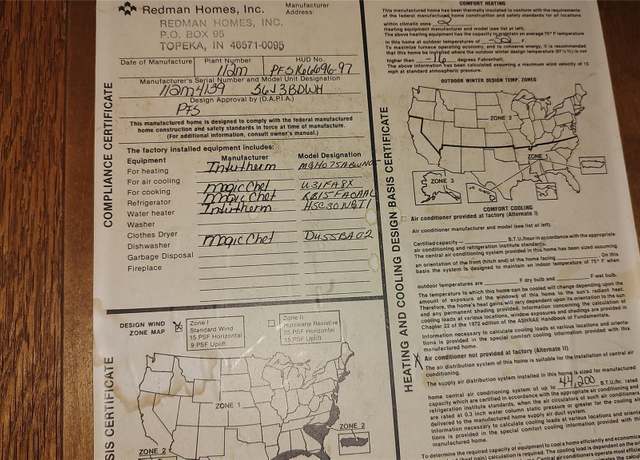 Redman Homes, Inc.
Manufacturer
Address:
REDMAN HOMES, INC.
P.O. BOX 95
TOPEKA, IN 46571-0095
Date of Manufacture Plant Number HUD No.
112m
Manufacturer's Serial Number and Model Unit Designation
112m4139
Design Approval by (D.A.P.I.A.)
PFS
This manufactured home is designed to comply with the federal manufactured
home construction and safety standards in force at time of manufacture.
(For additional information, consult owner's manual.)
The factory installed equipment includes:
Equipment Manufacturer Model Designation
For heating Intertherm
For air cooling
For cooking Magic Chef
Refrigerator Magic Chef
Water heater Intertherm
Washer
Clothes Dryer
Dishwasher Magic Chef
Garbage Disposal
Fireplace
COMPLIANCE CERTIFICATE
DESIGN WIND
ZONE MAP
Zone I
Standard Wind
15 PSF Horizontal
9 PSF Uplift
Zone II
Hurricane Resistive
25 PSF Horizontal
15 PSF Uplift
ZONE 1
ZONE 2
ZONE 2
SIS CERTIFICATE
COMFORT HEATING
This manufactured home has been thermally insulated to conform with the requirements
of the federal manufactured home construction and safety standards for all locations
within climatic zone 2
Heating equipment manufacturer and model (see list at left).
The above heating equipment has the capacity to maintain an average 70° F temperature
in this home at outdoor temperatures of
To maximize furnace operating economy, and to conserve energy, it is recommended
that this home be installed where the outdoor winter design temperature (97½%) is not
higher than -16 degrees Fahrenheit.
The above information has been calculated assuming a maximum wind velocity of 15
mph at standard atmospheric pressure.
OUTDOOR WINTER DESIGN TEMP. ZONES
ZONE 2
ZONE 1
ZONE 3
HEATING AND COOLING DESIGN BASIS CERTIFICATE
COMFORT COOLING
Air conditioner provided at factory (Alternate I)
Air conditioner manufacturer and model (see list at left).
Certified capacity B.T.U./hour in accordance with the appropriate
air conditioning and refrigeration institute standards.
The central air conditioning system provided in this home has been sized assuming
an orientation of the front (hitch end) of the home facing On this
basis the system is designed to maintain an indoor temperature of 75° F when
outdoor temperatures are F dry bulb and F wet bulb.
The temperature to which this home can be cooled will change depending upon the
amount of exposure of the windows of this home to the sun's radiant heat.
Therefore, the home's heat gains will vary dependent upon its orientation to the sun
and any permanent shading provided. Information concerning the calculation of
cooling loads at various locations, window exposures and shadings are provided in
Chapter 22 of the 1972 edition of the ASHRAE Handbook of Fundamentals.
Information necessary to calculate cooling loads at various locations and orienta-
tions is provided in the special comfort cooling information provided with this
manufactured home.
X Air conditioner not provided at factory (Alternate II)
The air distribution system of this home is suitable for the installation of central air
conditioning.
The supply air distribution system installed in this home is sized for manufactured
home central air conditioning system of up to 44,200 B.T.U./hr. rated
capacity which are certified in accordance with the appropriate air conditioning and
refrigeration institute standards, when the air circulators of such air conditioners
are rated at 0.3 inch water column static pressure or greater for the cooling air
delivered to the manufactured home supply air duct system.
Information necessary to calculate cooling loads at various locations and orienta-
tions is provided in the special comfort cooling information provided with this
manufactured home.
To determine the required capacity of equipment to cool a home efficiently and economically